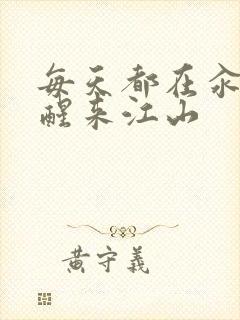 每天都在
醒来江山
黄守義